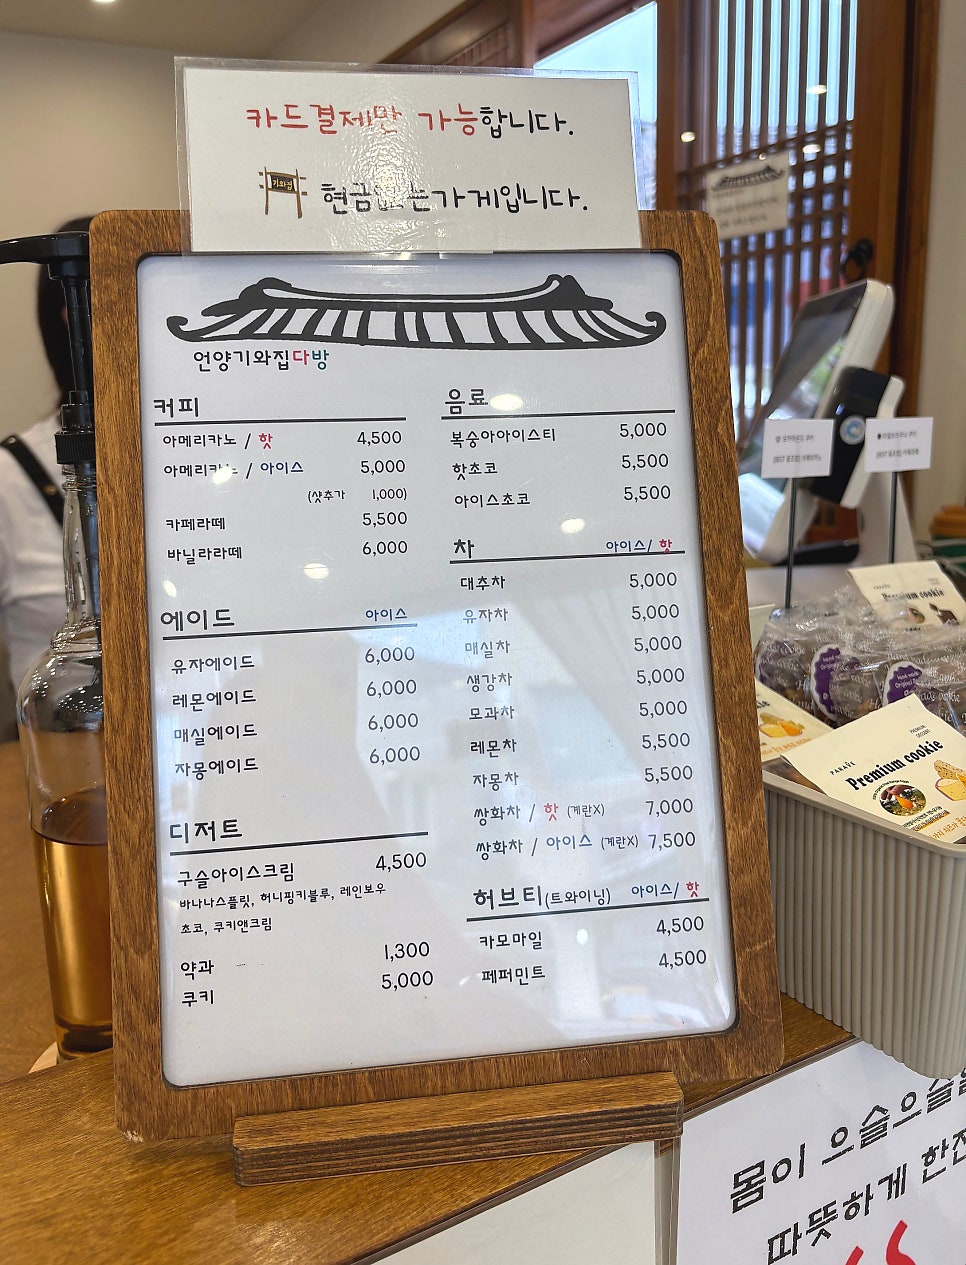 카드결제만 가능합니다.
기와집
현금없는가게입니다.
언양기와집다방
커피
아메리카노 / 핫 4,500
아메리카노 / 아이스 5,000
(샷추가 1,000)
카페라떼 5,500
바닐라라떼 6,000
에이드 아이스
유자에이드 6,000
레몬에이드 6,000
매실에이드 6,000
자몽에이드 6,000
디저트
구슬아이스크림 4,500
바나나스플릿, 허니핑키블루, 레인보우
초코, 쿠키앤크림
약과 1,300
쿠키 5,000
음료
복숭아아이스티 5,000
핫초코 5,500
아이스초코 5,500
차 아이스/ 핫
대추차 5,000
유자차 5,000
매실차 5,000
생강차 5,000
모과차 5,000
레몬차 5,500
자몽차 5,500
쌍화차 / 핫 (계란X) 7,000
쌍화차 / 아이스 (계란X) 7,500
허브티(트와이닝) 아이스/ 핫
카모마일 4,500
페퍼민트 4,500
Premium cookie
PREMIUM
DESSERT
Premium cookie
몸이 으슬으슬
따뜻하게 한잔